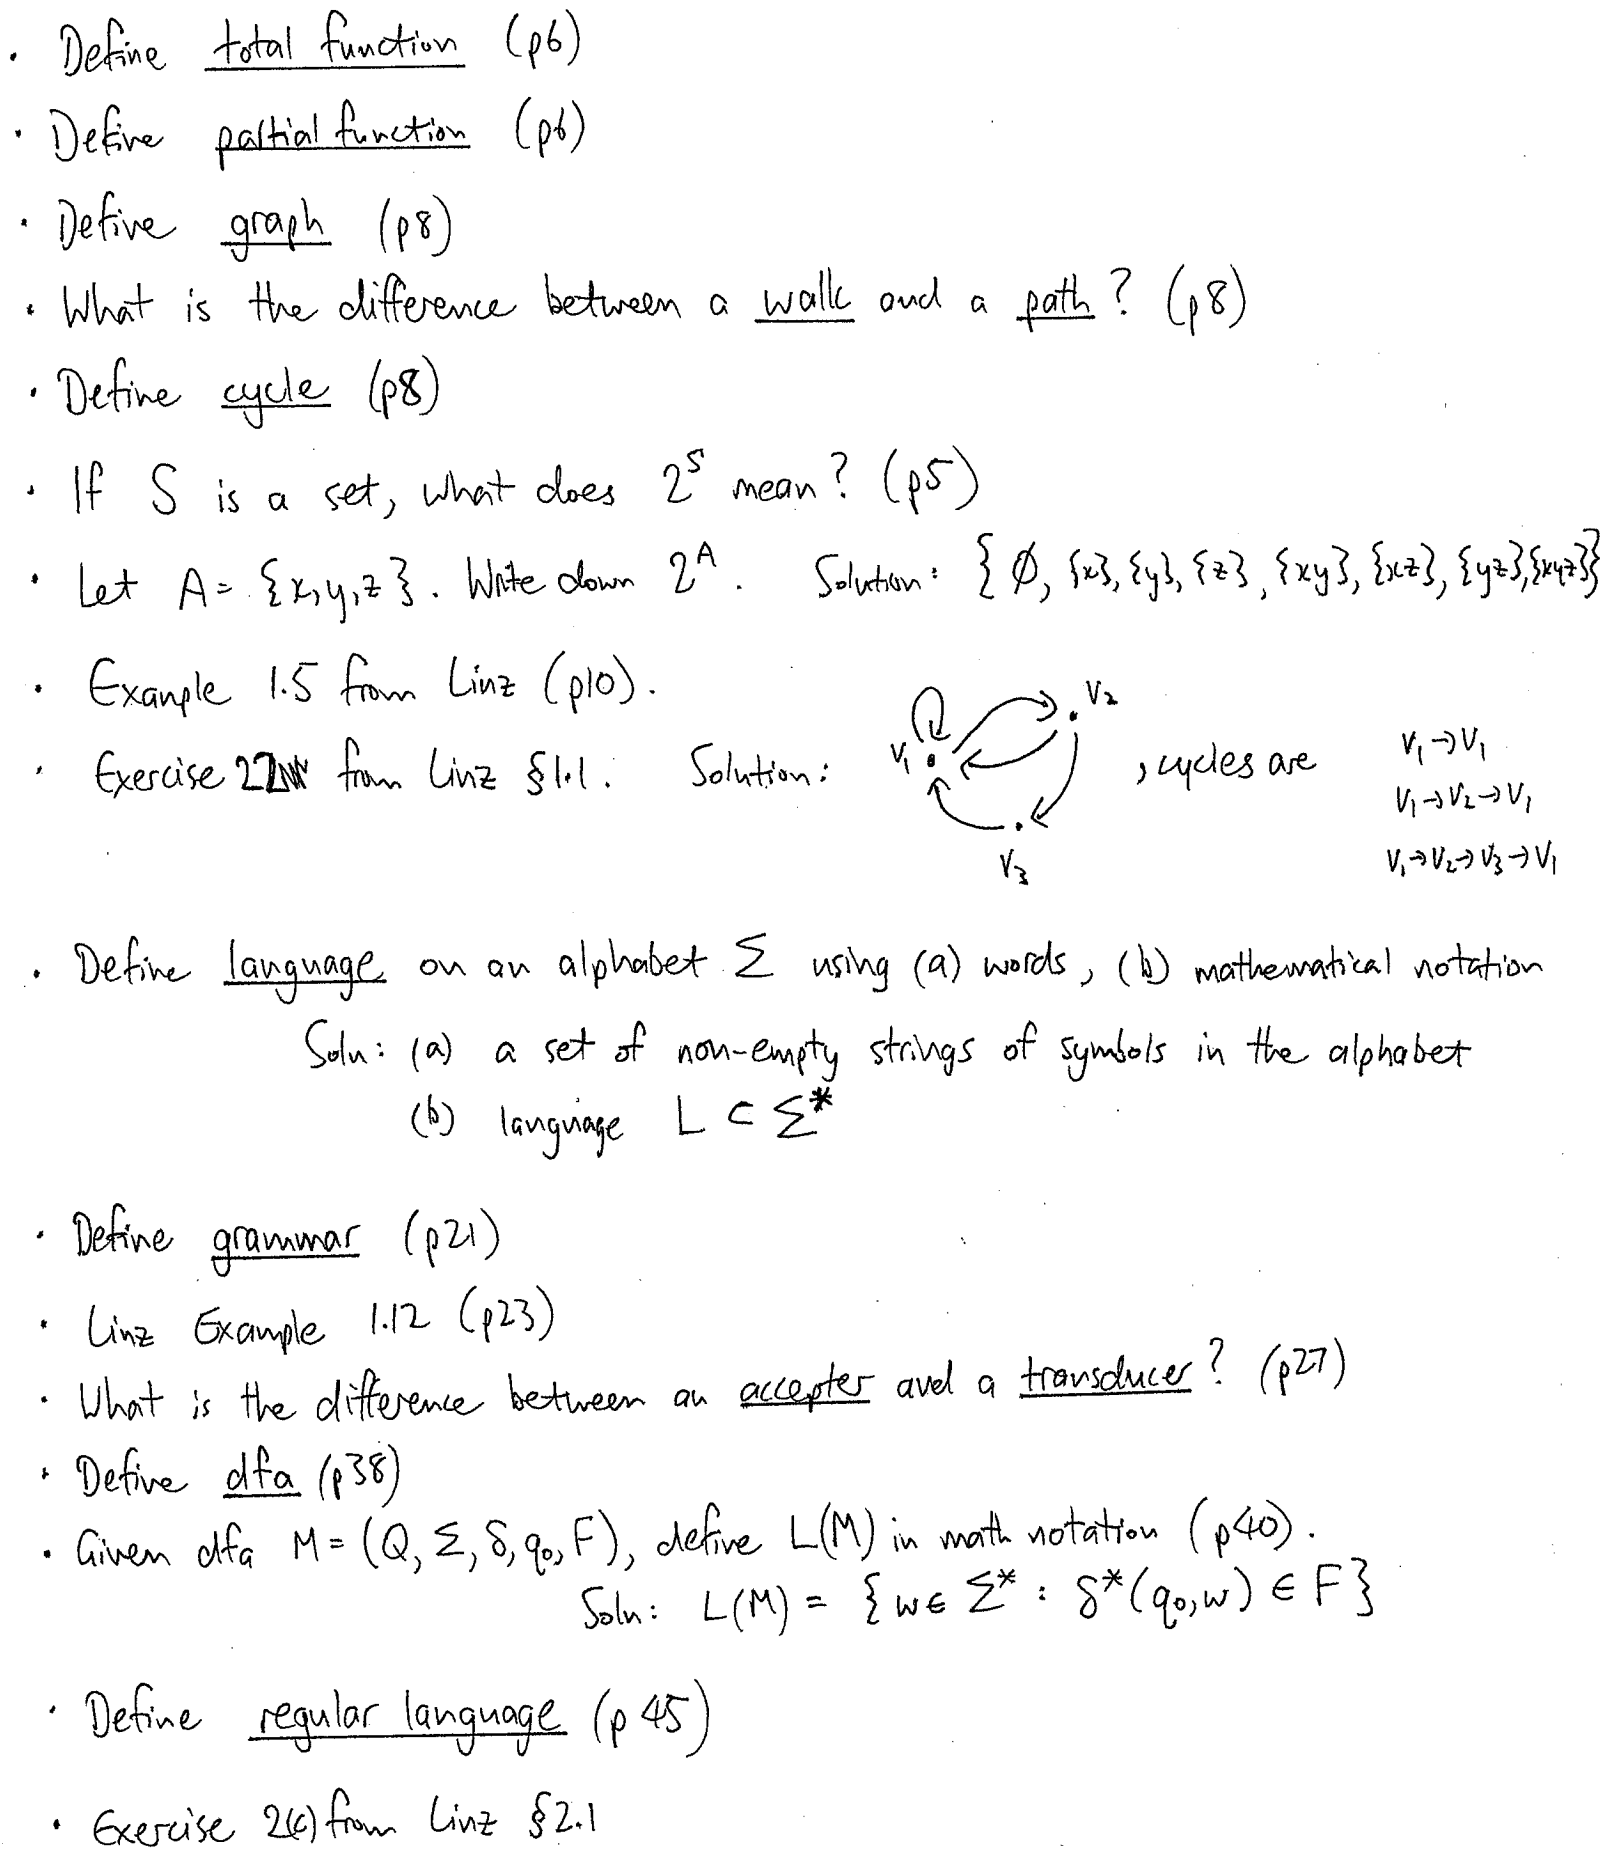 · Define total function (p6)
· Define partial function (p6)
· Define graph (p8)
· What is the difference between a walk and a path? (p8)
· Define cycle (p8)
· If S is a set, what does 2^S mean? (p5)
· Let A = {x,y,z}. Write down 2^A. Solution: {∅, {x}, {y}, {z}, {xy}, {xz}, {yz}, {xyz}}
· Example 1.5 from Linz (p10).
· Exercise 22 from Linz §1.1. Solution: V₁ V₂ V₃ , cycles are
V₁→V₁
V₁→V₂→V₁
V₁→V₂→V₃→V₁
· Define language on an alphabet Σ using (a) words, (b) mathematical notation
Soln: (a) a set of non-empty strings of symbols in the alphabet
(b) language L ⊂ Σ*
· Define grammar (p21)
· Linz Example 1.12 (p23)
· What is the difference between an accepter and a transducer? (p27)
· Define dfa (p38)
· Given dfa M = (Q, Σ, δ, q₀, F), define L(M) in math notation (p40).
Soln: L(M) = {w ∈ Σ* : δ*(q₀,w) ∈ F}
· Define regular language (p45)
· Exercise 2(c) from Linz §2.1